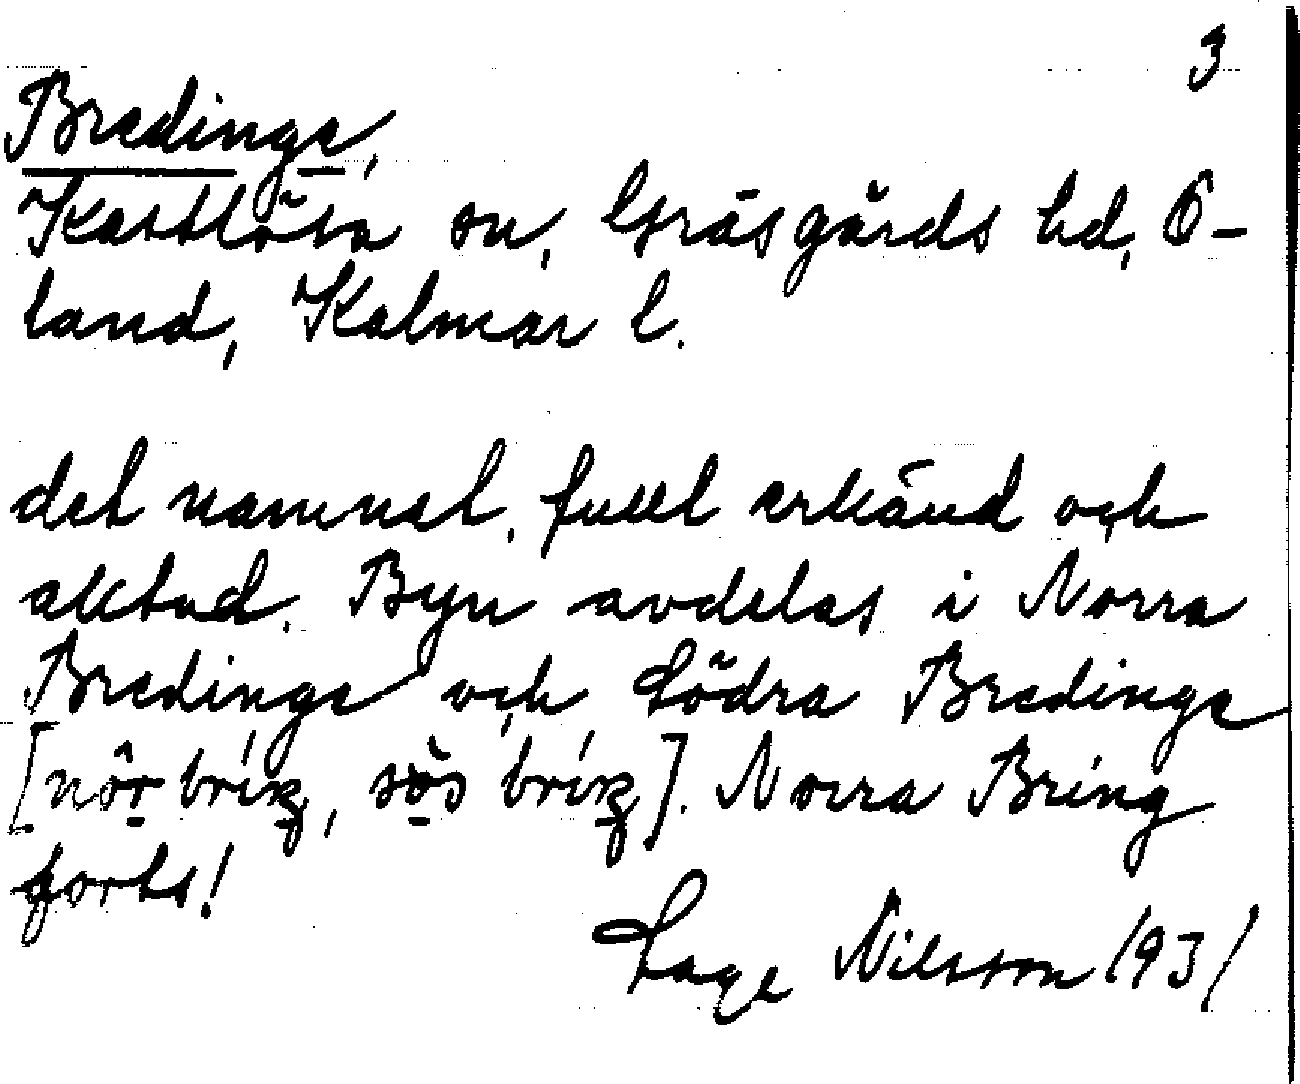 3
Bredinge,
Kastlösa sn, Gräsgårds hd, Ö-
land, Kalmar l.
det namnet, fullt erkänd och
aktad. Byn avdelas i Norra
Bredinge och Södra Bredinge
[nôr bríŋ, sös bríŋ]. Norra Bring
forts!
Lage Nilsson 1931